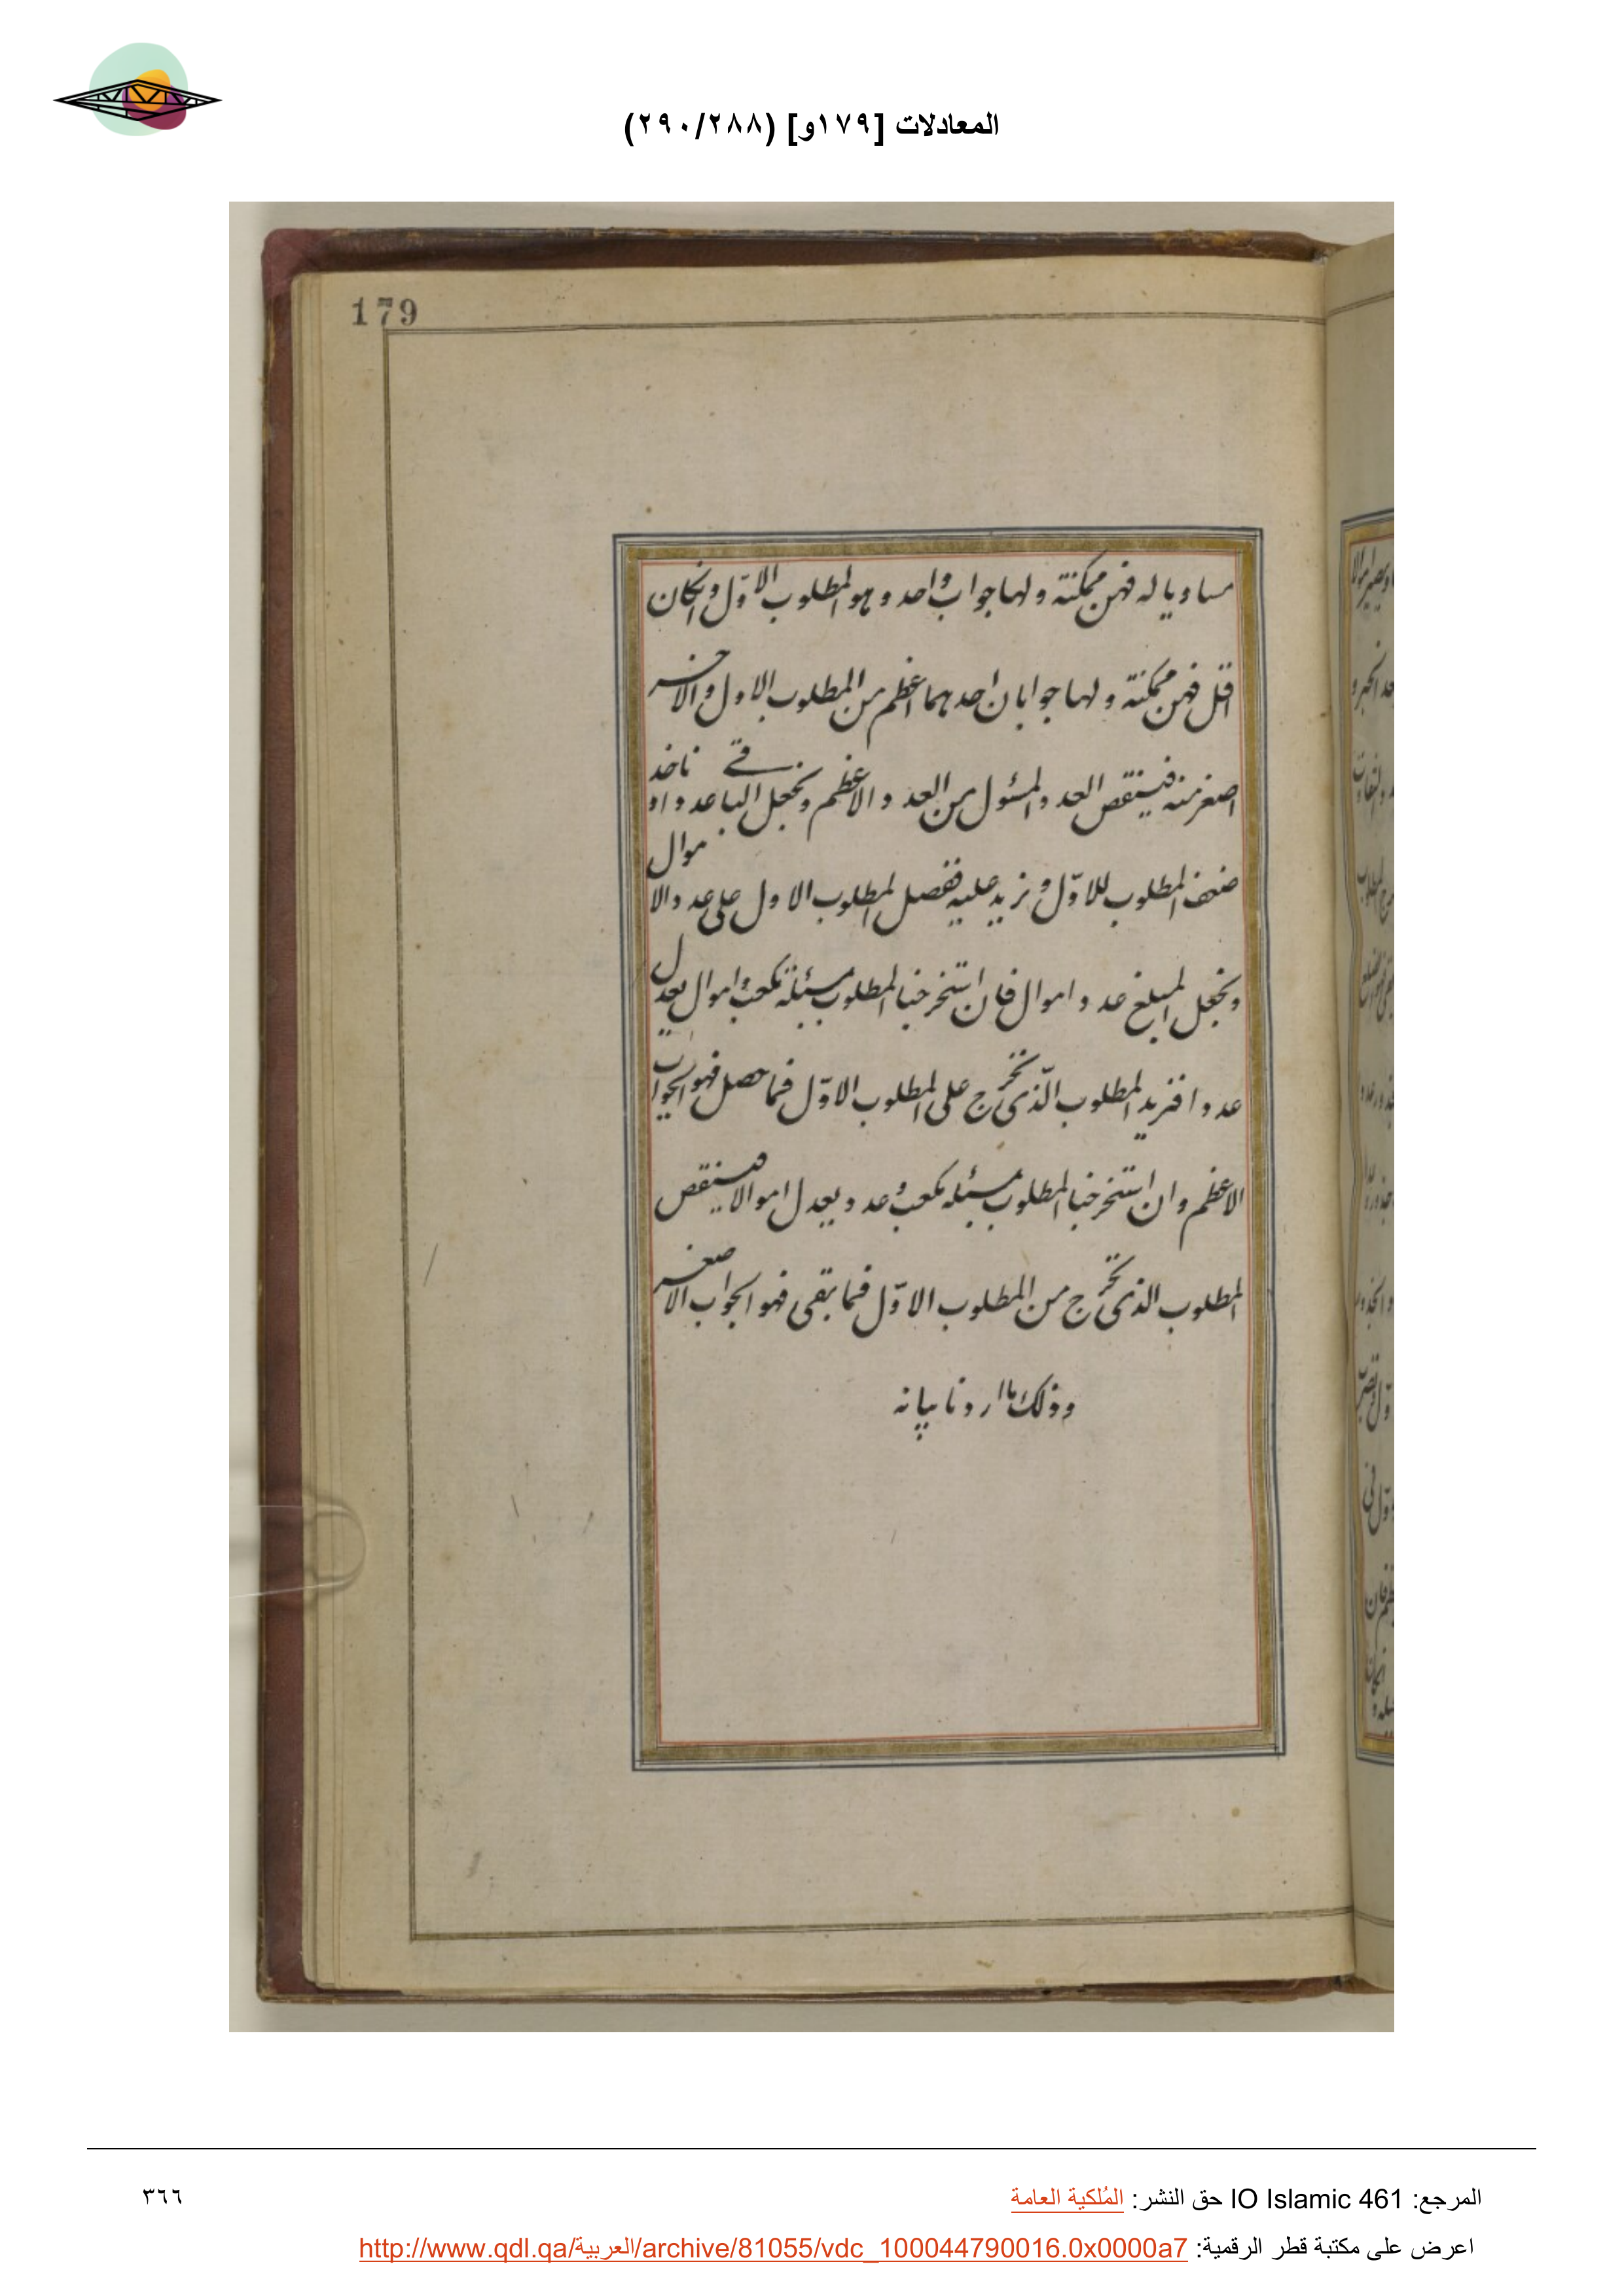 المعادلات [١٧٩و] (٢٩٠/٢٨٨)
179
مساويا له فهى ممكنة ولها جواب واحد وهو المطلوب الاوّل وانكان
اقل فهى ممكنة ولها جوابان احدهما اعظم من المطلوب الاول والاخر
اصغر منه فينقص العدد المسئول من العدد الاعظم ونجعل الباقى عددا وناخذ
ضعف المطلوب للاوّل ونزيد عليه فضل المطلوب الاول على عدد الاموال
ونجعل المبلغ عدد اموال فان استخرجنا المطلوب بمسئلة مكعب واموال يعدل
عددا فنزيد المطلوب الّذى نخرج على المطلوب الاوّل فما حصل فهو الجواب
الاعظم وان استخرجنا المطلوب بمسئلة مكعب وعدد يعدل اموالا فينقص
المطلوب الذى نخرج من المطلوب الاوّل فما بقى فهو الجواب الاصغر
وذلك ما اردنا بيانه
المرجع: IO Islamic 461 حق النشر: المُلكية العامة
٣٦٦
اعرض على مكتبة قطر الرقمية: http://www.qdl.qa/العربية/archive/81055/vdc_100044790016.0x0000a7